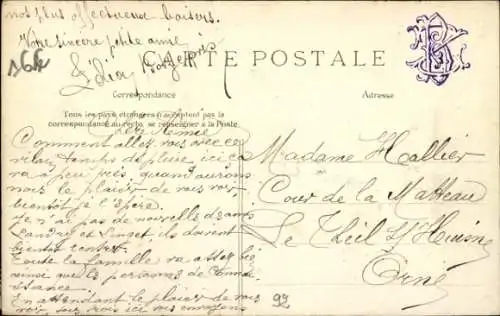 nos plus affectueux baisers.
Votre sincère petite amie
CARTE POSTALE
Correspondance
Adresse
Tous les pays étrangers n'acceptent pas la
correspondance au recto, se renseigner à la Poste.
Chère Amie
Comment allez vous avec ce
temps de pluie, ici ça
va à peu près, quand aurons
nous le plaisir de vous voir
bientôt je l'espère.
Je n'ai pas de nouvelles d'
Landry et ils doivent
bientôt rentrer.
Toute la famille va assez bien
ainsi que les personnes de
En attendant le plaisir de vous
voir, nous vous envoyons
Madame Hallier
Cour de la
Le Theil s/ Huisne
Orne
92